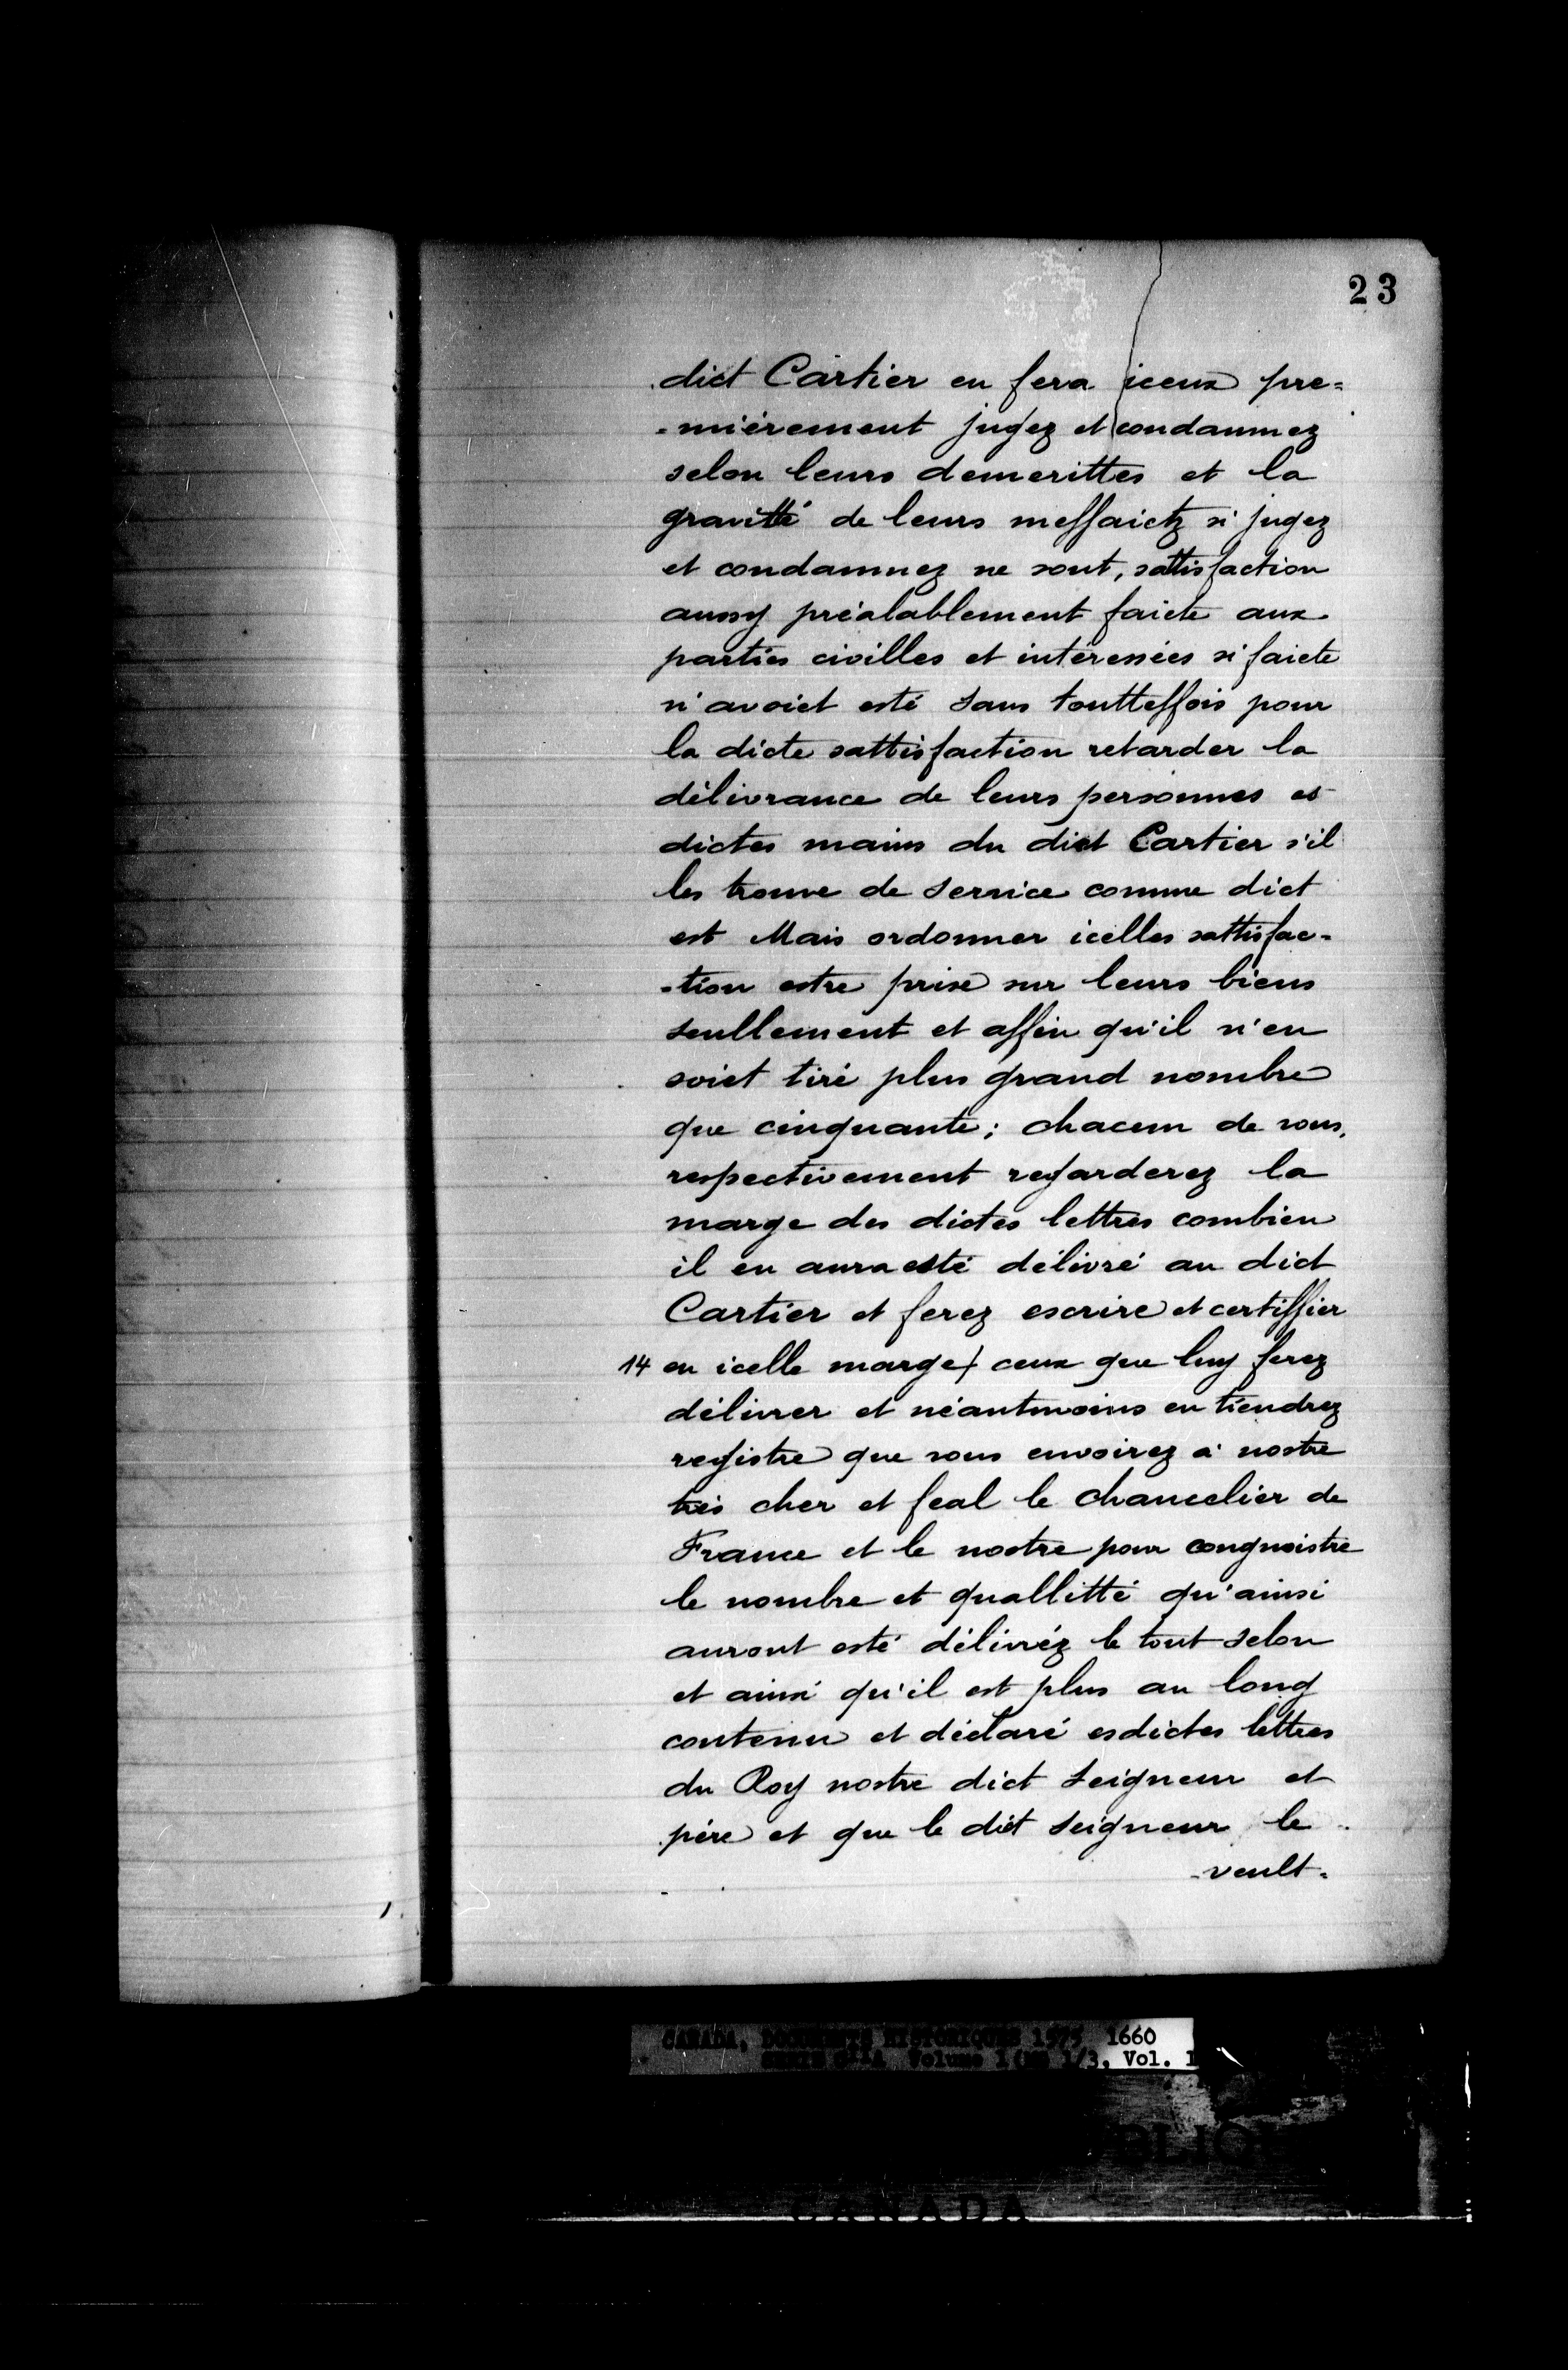 23
dict Cartier en fera iceux pre=
=mièrement jugez et condamnez
selon leurs demerittes et la
gravitté de leurs meffaictz si jugez
et condamnez ne sont, sattisfaction
aussy préalablement faicte aux
parties civilles et intéressées si faicte
n'avoict esté sans touttesfois pour
la dicte sattisfaction retarder la
délivrance de leurs personnes es
dictes mains du dict Cartier s'il
les trouve de service comme dict
est Mais ordonner icelles sattisfac=
=tion estre prise sur leurs biens
seullement et affin qu'il n'en
soict tiré plus grand nombre
que cinquante; chacun de vous,
respectivement regarderez la
marge des dictes lettres combien
il en aura esté délivré au dict
Cartier et ferez escrire et certiffier
14 en icelle marge / ceux que luy ferez
délivrer et néantmoins en tiendrez
registre que vous envoirez à nostre
très cher et feal le chancelier de
France et le nostre pour congnoistre
le nombre et quallitté qu'ainsi
auront esté délivréz le tout selon
et ainsi qu'il est plus au long
contenu et déclaré esdictes lettres
du Roy nostre dict Seigneur et
père et que le dict Seigneur le
-veult-
CANADA, DOCUMENTS HISTORIQUES 1575 1660
Volume 1 1/3, Vol. 1
CANADA